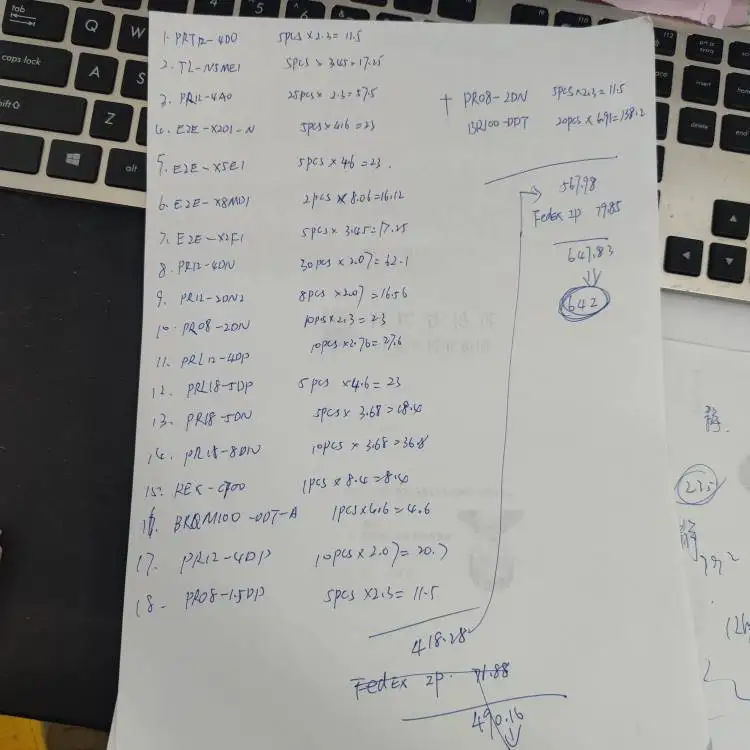 1. PRT12-4DO 5pcs x 2.3 = 11.5
2. TL-N5ME1 5pcs x 3.45 = 17.25
3. PR12-4AO 25pcs x 2.3 = 57.5
4. E2E-X2D1-N 5pcs x 4.6 = 23
5. E2E-X5E1 5pcs x 4.6 = 23.
6. E2E-X8MD1 2pcs x 8.06 = 16.12
7. E2E-X2F1 5pcs x 3.45 = 17.25
8. PR12-4DN 30pcs x 2.07 = 62.1
9. PR12-2DN2 8pcs x 2.07 = 16.56
10. PR08-2DN 10pcs x 2.3 = 23
11. PRL12-4DP 10pcs x 2.76 = 27.6
12. PRL18-5DP 5pcs x 4.6 = 23
13. PR18-5DN 5pcs x 3.68 = 18.4
14. PR18-8DN 10pcs x 3.68 = 36.8
15. 1pcs x 8.4 = 8.4
16. BRQM100-DDT-A 1pcs x 4.6 = 4.6
17. PR12-4DP 10pcs x 2.07 = 20.7
18. PR08-1.5DP 5pcs x 2.3 = 11.5
418.28
FedEx 2p. 71.88
490.16
+ PR08-2DN 5pcs x 2.3 = 11.5
BR100-DDT 20pcs x 6.91 = 138.2
567.98
FedEx 2p 79.85
647.83
642
caps lock
tab
Q
W
A
S
Z
alt
shift
insert
delete
end
静
275
静